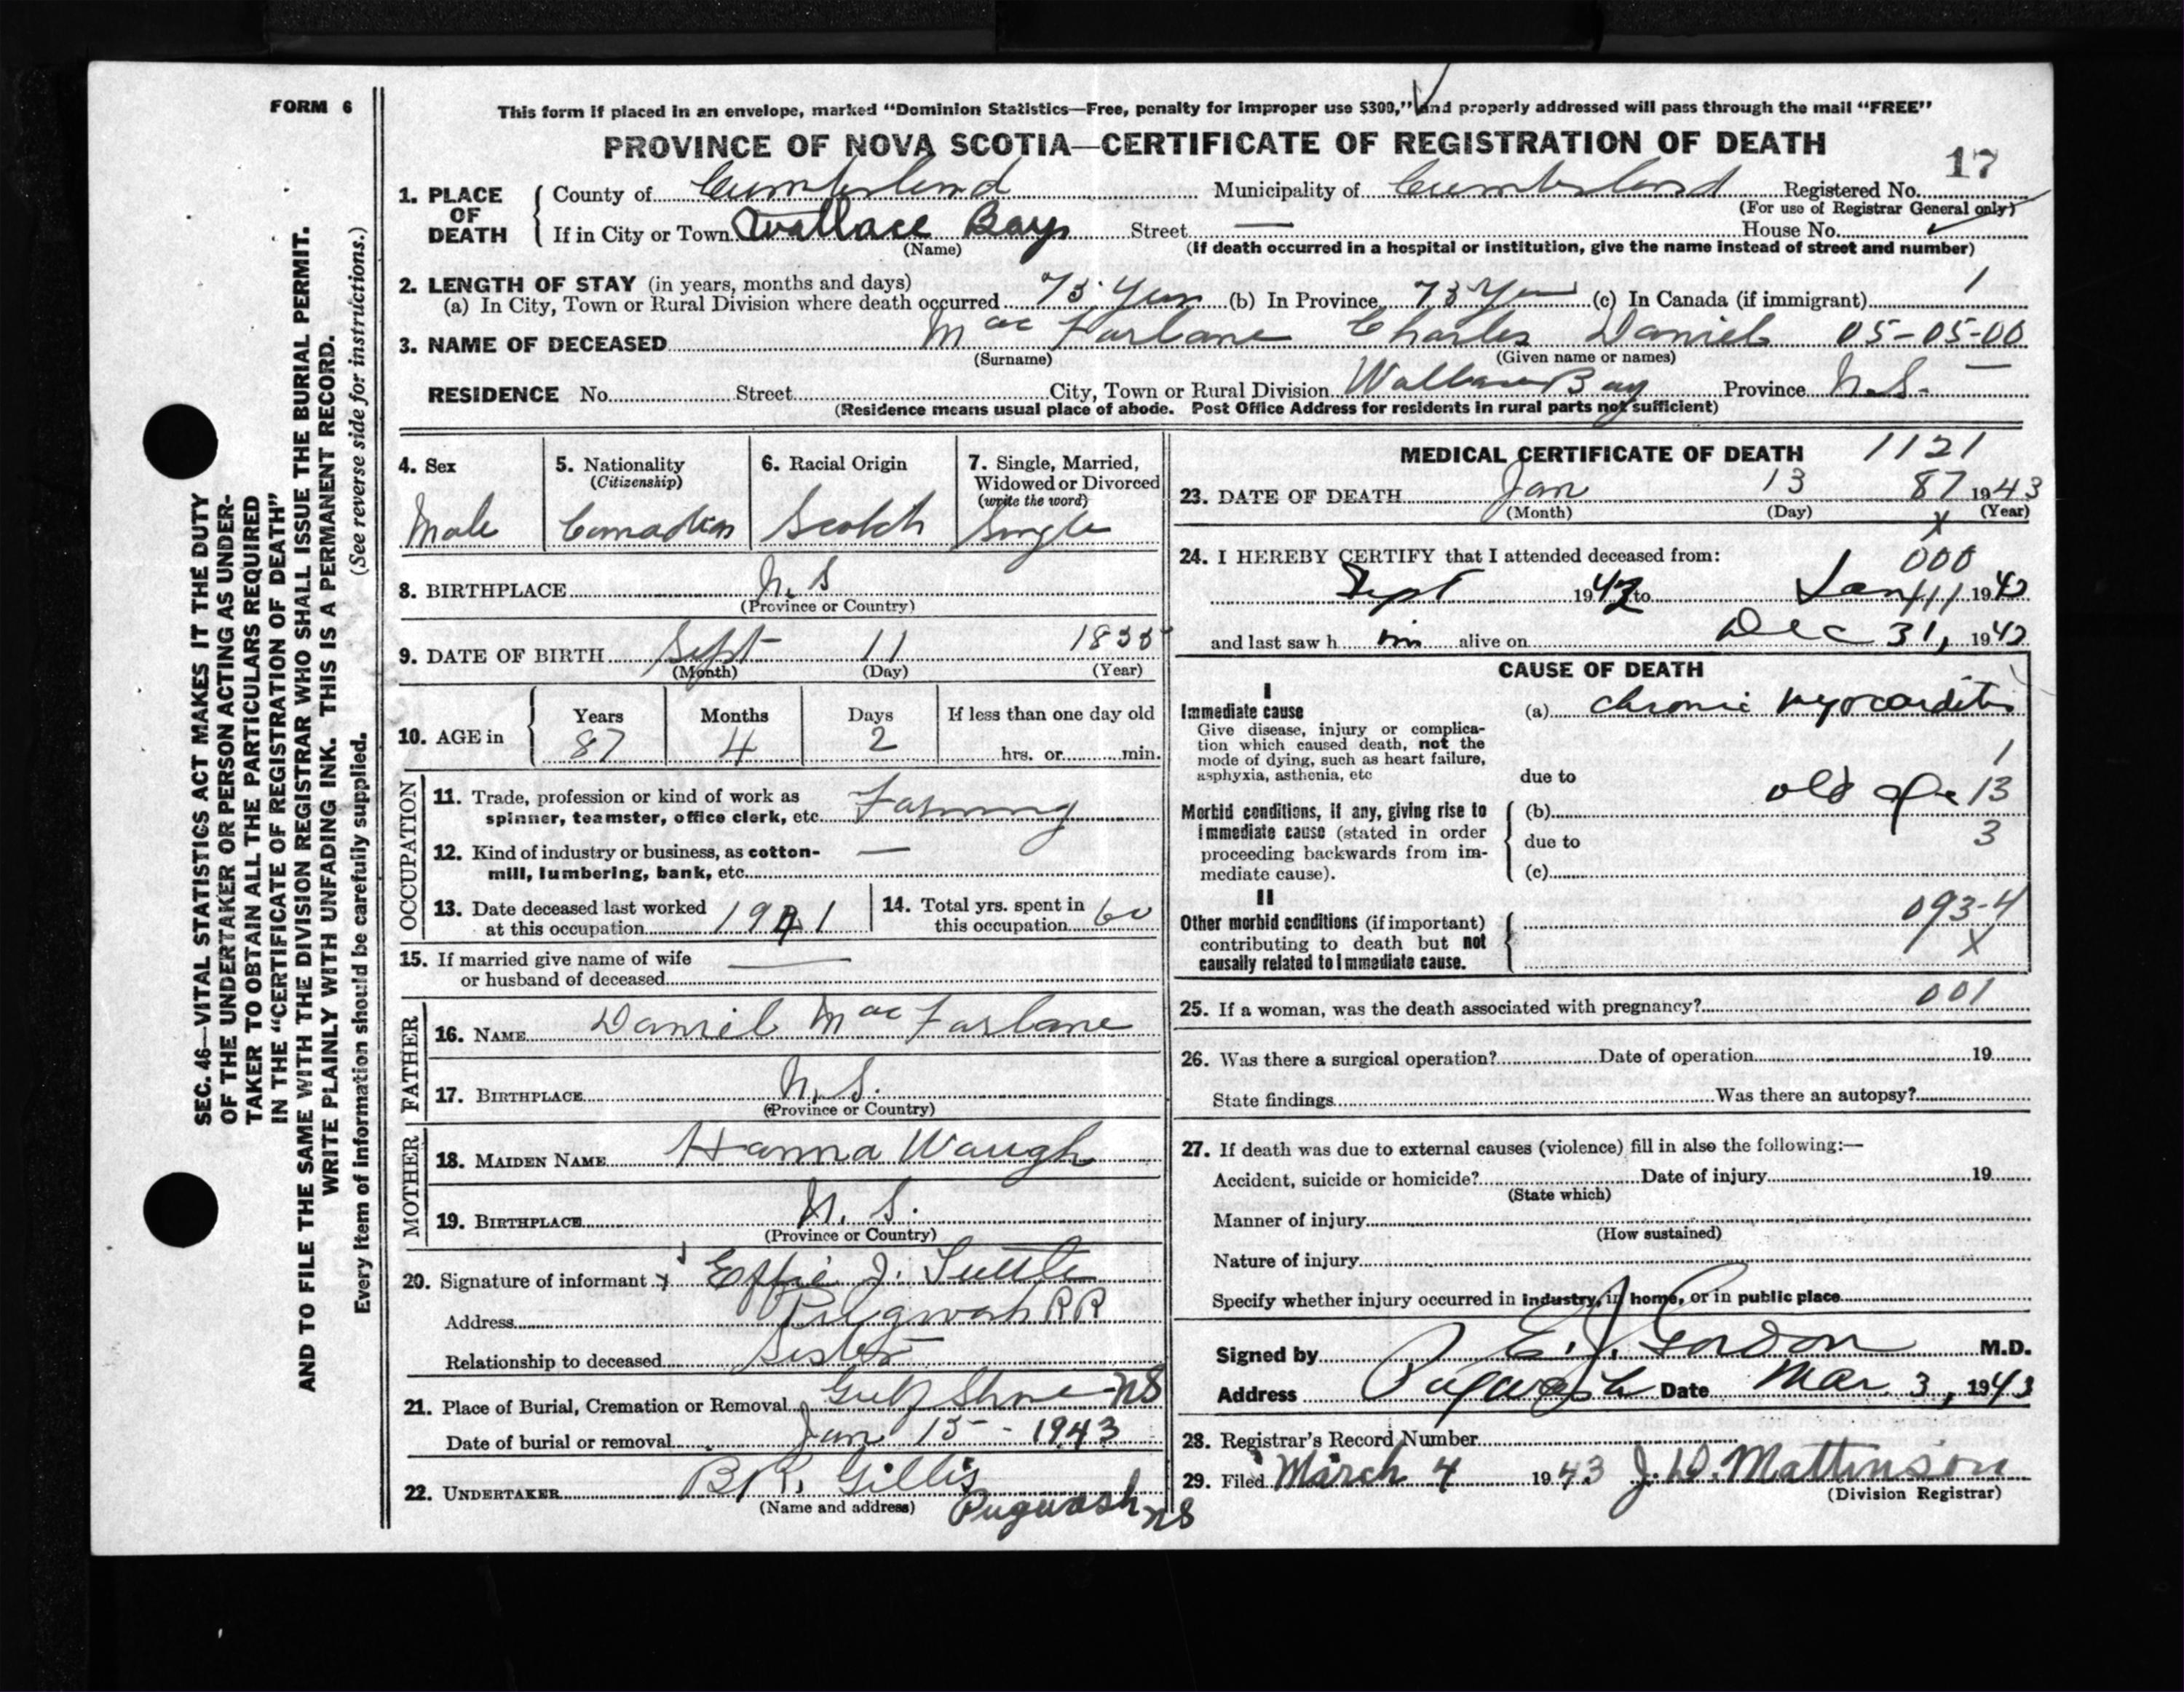 FORM 6
SEC. 46—VITAL STATISTICS ACT MAKES IT THE DUTY
OF THE UNDERTAKER OR PERSON ACTING AS UNDER-
TAKER TO OBTAIN ALL THE PARTICULARS REQUIRED
IN THE "CERTIFICATE OF REGISTRATION OF DEATH"
AND TO FILE THE SAME WITH THE DIVISION REGISTRAR WHO SHALL ISSUE THE BURIAL PERMIT.
WRITE PLAINLY WITH UNFADING INK. THIS IS A PERMANENT RECORD.
Every item of information should be carefully supplied. (See reverse side for instructions.)
This form if placed in an envelope, marked "Dominion Statistics—Free, penalty for improper use $300," and properly addressed will pass through the mail "FREE"
PROVINCE OF NOVA SCOTIA—CERTIFICATE OF REGISTRATION OF DEATH
17
1. PLACE OF DEATH County of Cumberland Municipality of Cumberland Registered No.
(For use of Registrar General only)
If in City or Town Wallace Bay Street — House No.
(Name) (If death occurred in a hospital or institution, give the name instead of street and number)
2. LENGTH OF STAY (in years, months and days)
(a) In City, Town or Rural Division where death occurred 73 Years (b) In Province 73 Years (c) In Canada (if immigrant) 1
3. NAME OF DECEASED MacFarlane Charles Daniel 05-05-00
(Surname) (Given name or names)
RESIDENCE No. Street City, Town or Rural Division Wallace Bay Province N.S. —
(Residence means usual place of abode. Post Office Address for residents in rural parts not sufficient)
4. Sex
Male
5. Nationality
(Citizenship)
Canadian
6. Racial Origin
Scotch
7. Single, Married,
Widowed or Divorced
(write the word)
Single
8. BIRTHPLACE N.S
(Province or Country)
9. DATE OF BIRTH Sept 11 1855
(Month) (Day) (Year)
10. AGE in Years Months Days If less than one day old
87 4 2 hrs. or min.
OCCUPATION
11. Trade, profession or kind of work as
spinner, teamster, office clerk, etc. Farming
12. Kind of industry or business, as cotton- —
mill, lumbering, bank, etc.
13. Date deceased last worked
at this occupation 1941
14. Total yrs. spent in
this occupation 60
15. If married give name of wife —
or husband of deceased
FATHER
16. NAME Daniel MacFarlane
17. BIRTHPLACE N.S.
(Province or Country)
MOTHER
18. MAIDEN NAME Hanna Waugh
19. BIRTHPLACE N.S.
(Province or Country)
20. Signature of informant x Effie J. Tuttle
Address Pugwash RR
Relationship to deceased Sister
21. Place of Burial, Cremation or Removal Gulf Shore NS
Date of burial or removal Jan 15 - 1943
22. UNDERTAKER B.R. Gillis
(Name and address) Pugwash NS
MEDICAL CERTIFICATE OF DEATH 1121
23. DATE OF DEATH Jan 13 87 1943
(Month) (Day) (Year)
x
24. I HEREBY CERTIFY that I attended deceased from:
000
Sept 1942 to Jan 11 1943
and last saw h im alive on Dec 31, 1942
CAUSE OF DEATH
I
Immediate cause
Give disease, injury or complica-
tion which caused death, not the
mode of dying, such as heart failure,
asphyxia, asthenia, etc
(a) chronic myocarditis
1
due to
Morbid conditions, if any, giving rise to
immediate cause (stated in order
proceeding backwards from im-
mediate cause).
(b) old age 13
due to 3
(c)
II
Other morbid conditions (if important)
contributing to death but not
causally related to immediate cause.
093-4
x
25. If a woman, was the death associated with pregnancy? 001
26. Was there a surgical operation? Date of operation 19
State findings Was there an autopsy?
27. If death was due to external causes (violence) fill in also the following:—
Accident, suicide or homicide? Date of injury 19
(State which)
Manner of injury
(How sustained)
Nature of injury
Specify whether injury occurred in industry, in home, or in public place
Signed by C. J. Gordon M.D.
Address Pugwash Date Mar. 3, 1943
28. Registrar's Record Number
29. Filed March 4 1943 J. W. Mattinson
(Division Registrar)